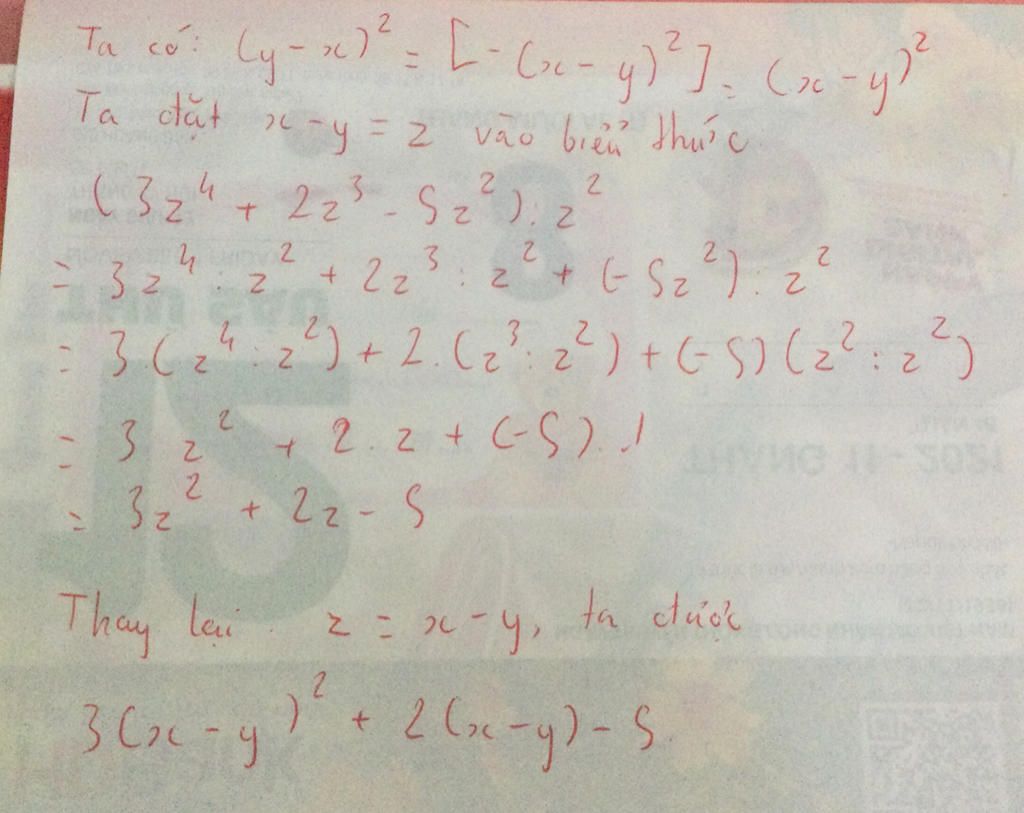 Ta có: (y - x)² = [-(x - y)²] = (x - y)²
Ta đặt x - y = z vào biểu thức
(3z⁴ + 2z³ - 5z²) : z²
= 3z⁴ : z² + 2z³ : z² + (-5z²) : z²
= 3.(z⁴ : z²) + 2.(z³ : z²) + (-5)(z² : z²)
= 3 z² + 2.z + (-5).1
= 3z² + 2z - 5
Thay lại z = x - y, ta được
3(x - y)² + 2(x - y) - 5